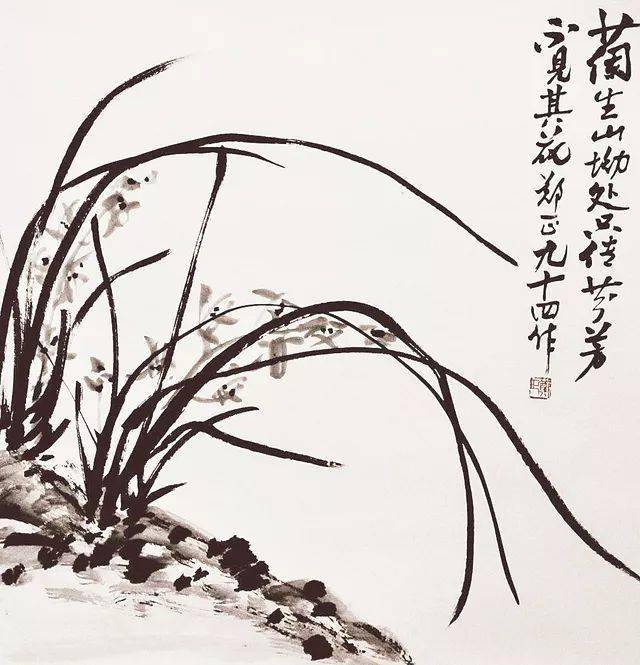 蘭生山坳处只芬芳
不見其花郑正九十四作